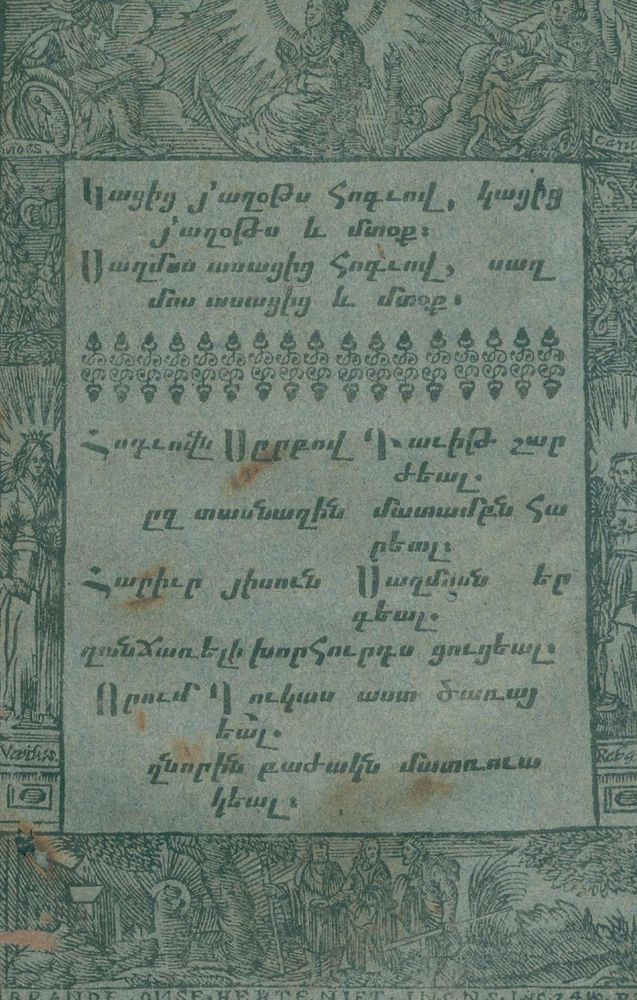 Կացից յ՚աղօթս Հոգւով, կացից
յ՚աղօթս և մտօք։
Սաղմոս ասացից Հոգւով, սաղ
մոս ասացից և մտօք։
Հոգւովն Սրբով Դաւիթ շար
ժեալ.
ըզ տասնաղին մատամբն հա
րեալ։
Հարիւր յիսուն Սաղմոսն եր
գեալ.
զանճառելի խորհուրդս ցուցեալ։
Որում Ղուկաս աստ ծառայ
եալ.
զնորին բաժակն մատռուա
կեալ։